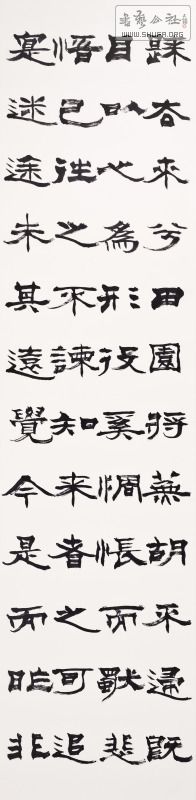 書藝公社
WWW.SHUFA.ORG
歸去来兮田園将蕪胡不歸既
自以心為形役奚惆悵而獸悲
悟已往之不諫知来者之可追
寔迷途未其遠覺今是而昨非